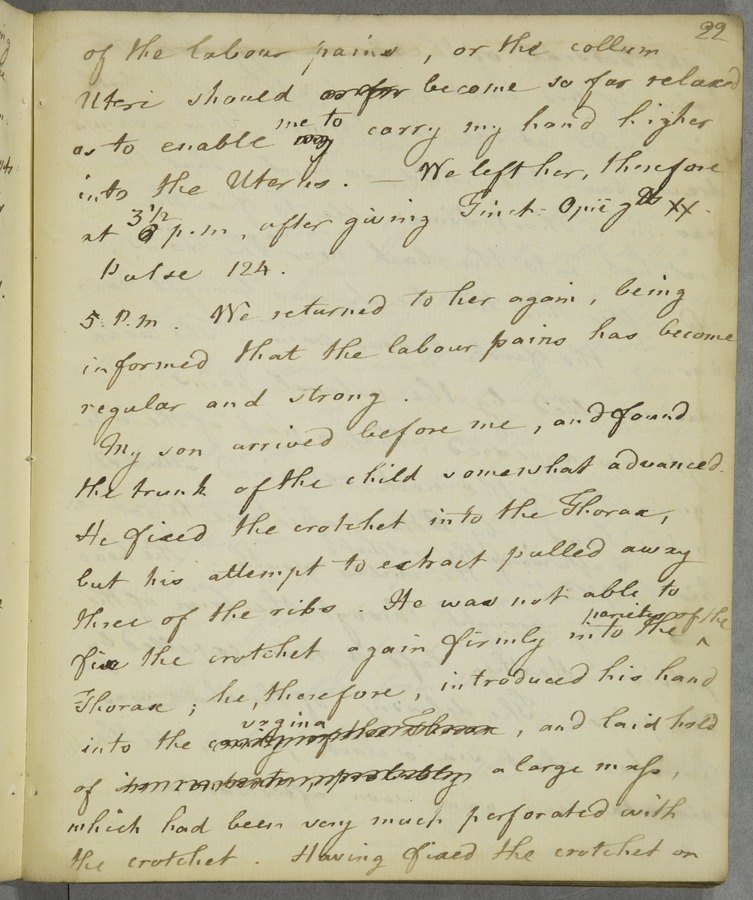 22
of the labour pains, or the collum
Uteri should or for become so far relaxed
as to enable me to carry my hand higher
into the Uterus. — We left her, therefore
at 3 1/2 p.m, after giving Tinct: Opii gtts XX.
Pulse 124.
5 P.m. We returned to her again, being
informed that the labour pains has become
regular and strong.
My son arrived before me, and found
the trunk of the child somewhat advanced.
He fixed the crotchet into the Thorax,
but his attempt to extract pulled away
three of the ribs. He was not able to
fix the crotchet again firmly into the parietes of the
Thorax; he, therefore, introduced his hand
into the vagina cavity of the Thorax, and laid hold
of probably a large mass,
which had been very much perforated with
the crotchet. Having fixed the crotchet on